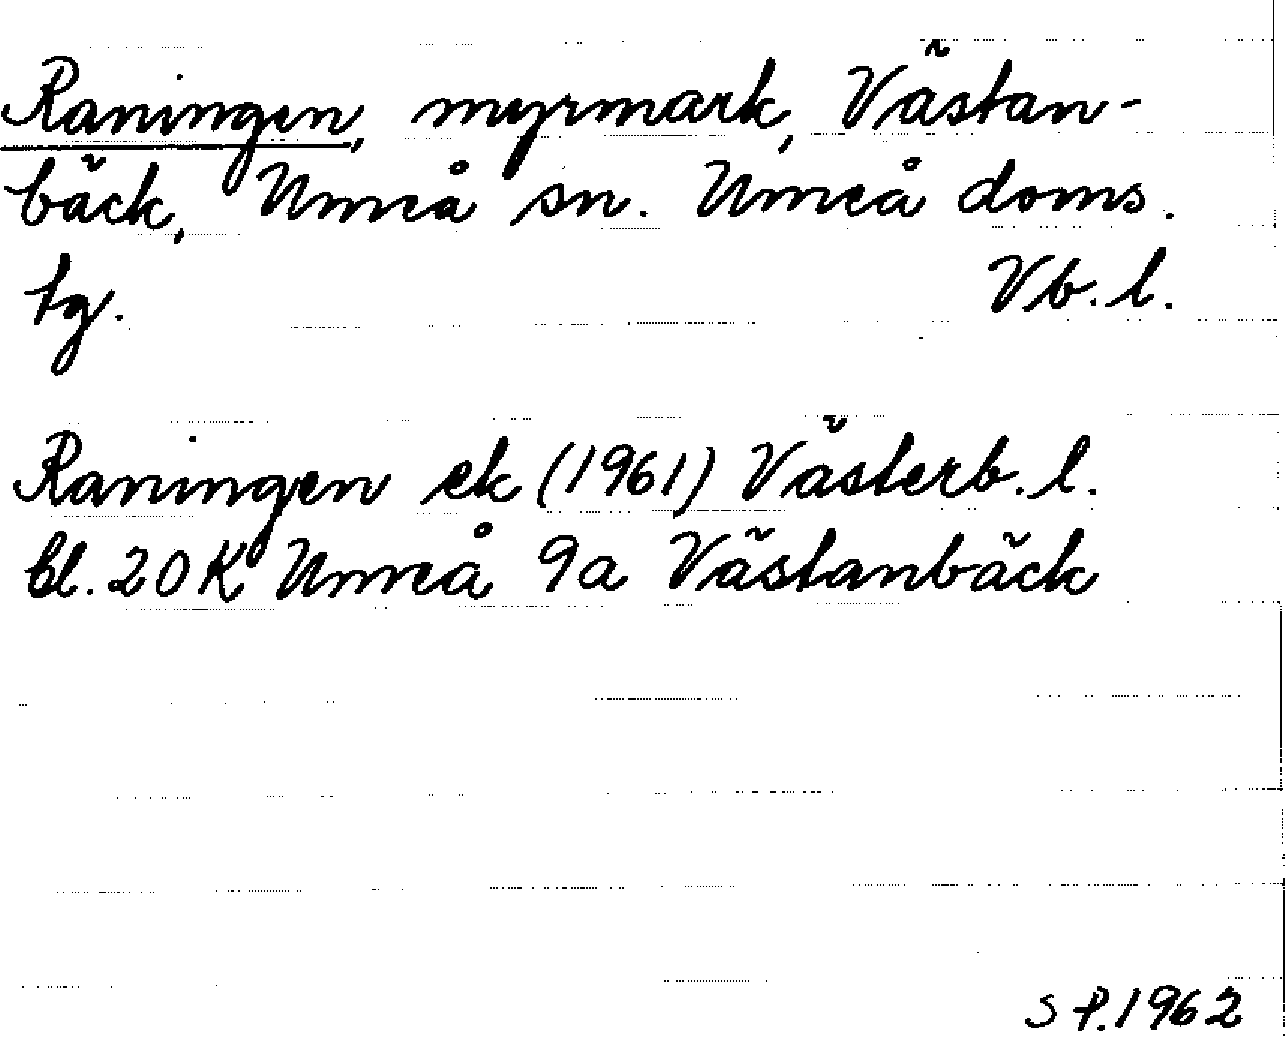 Raningen, myrmark, Västan-
bäck, Umeå sn. Umeå doms.
tg. Vb. l.
Raningen ek (1961) Västerb. l.
bl. 20 K Umeå 9a Västanbäck
S P. 1962